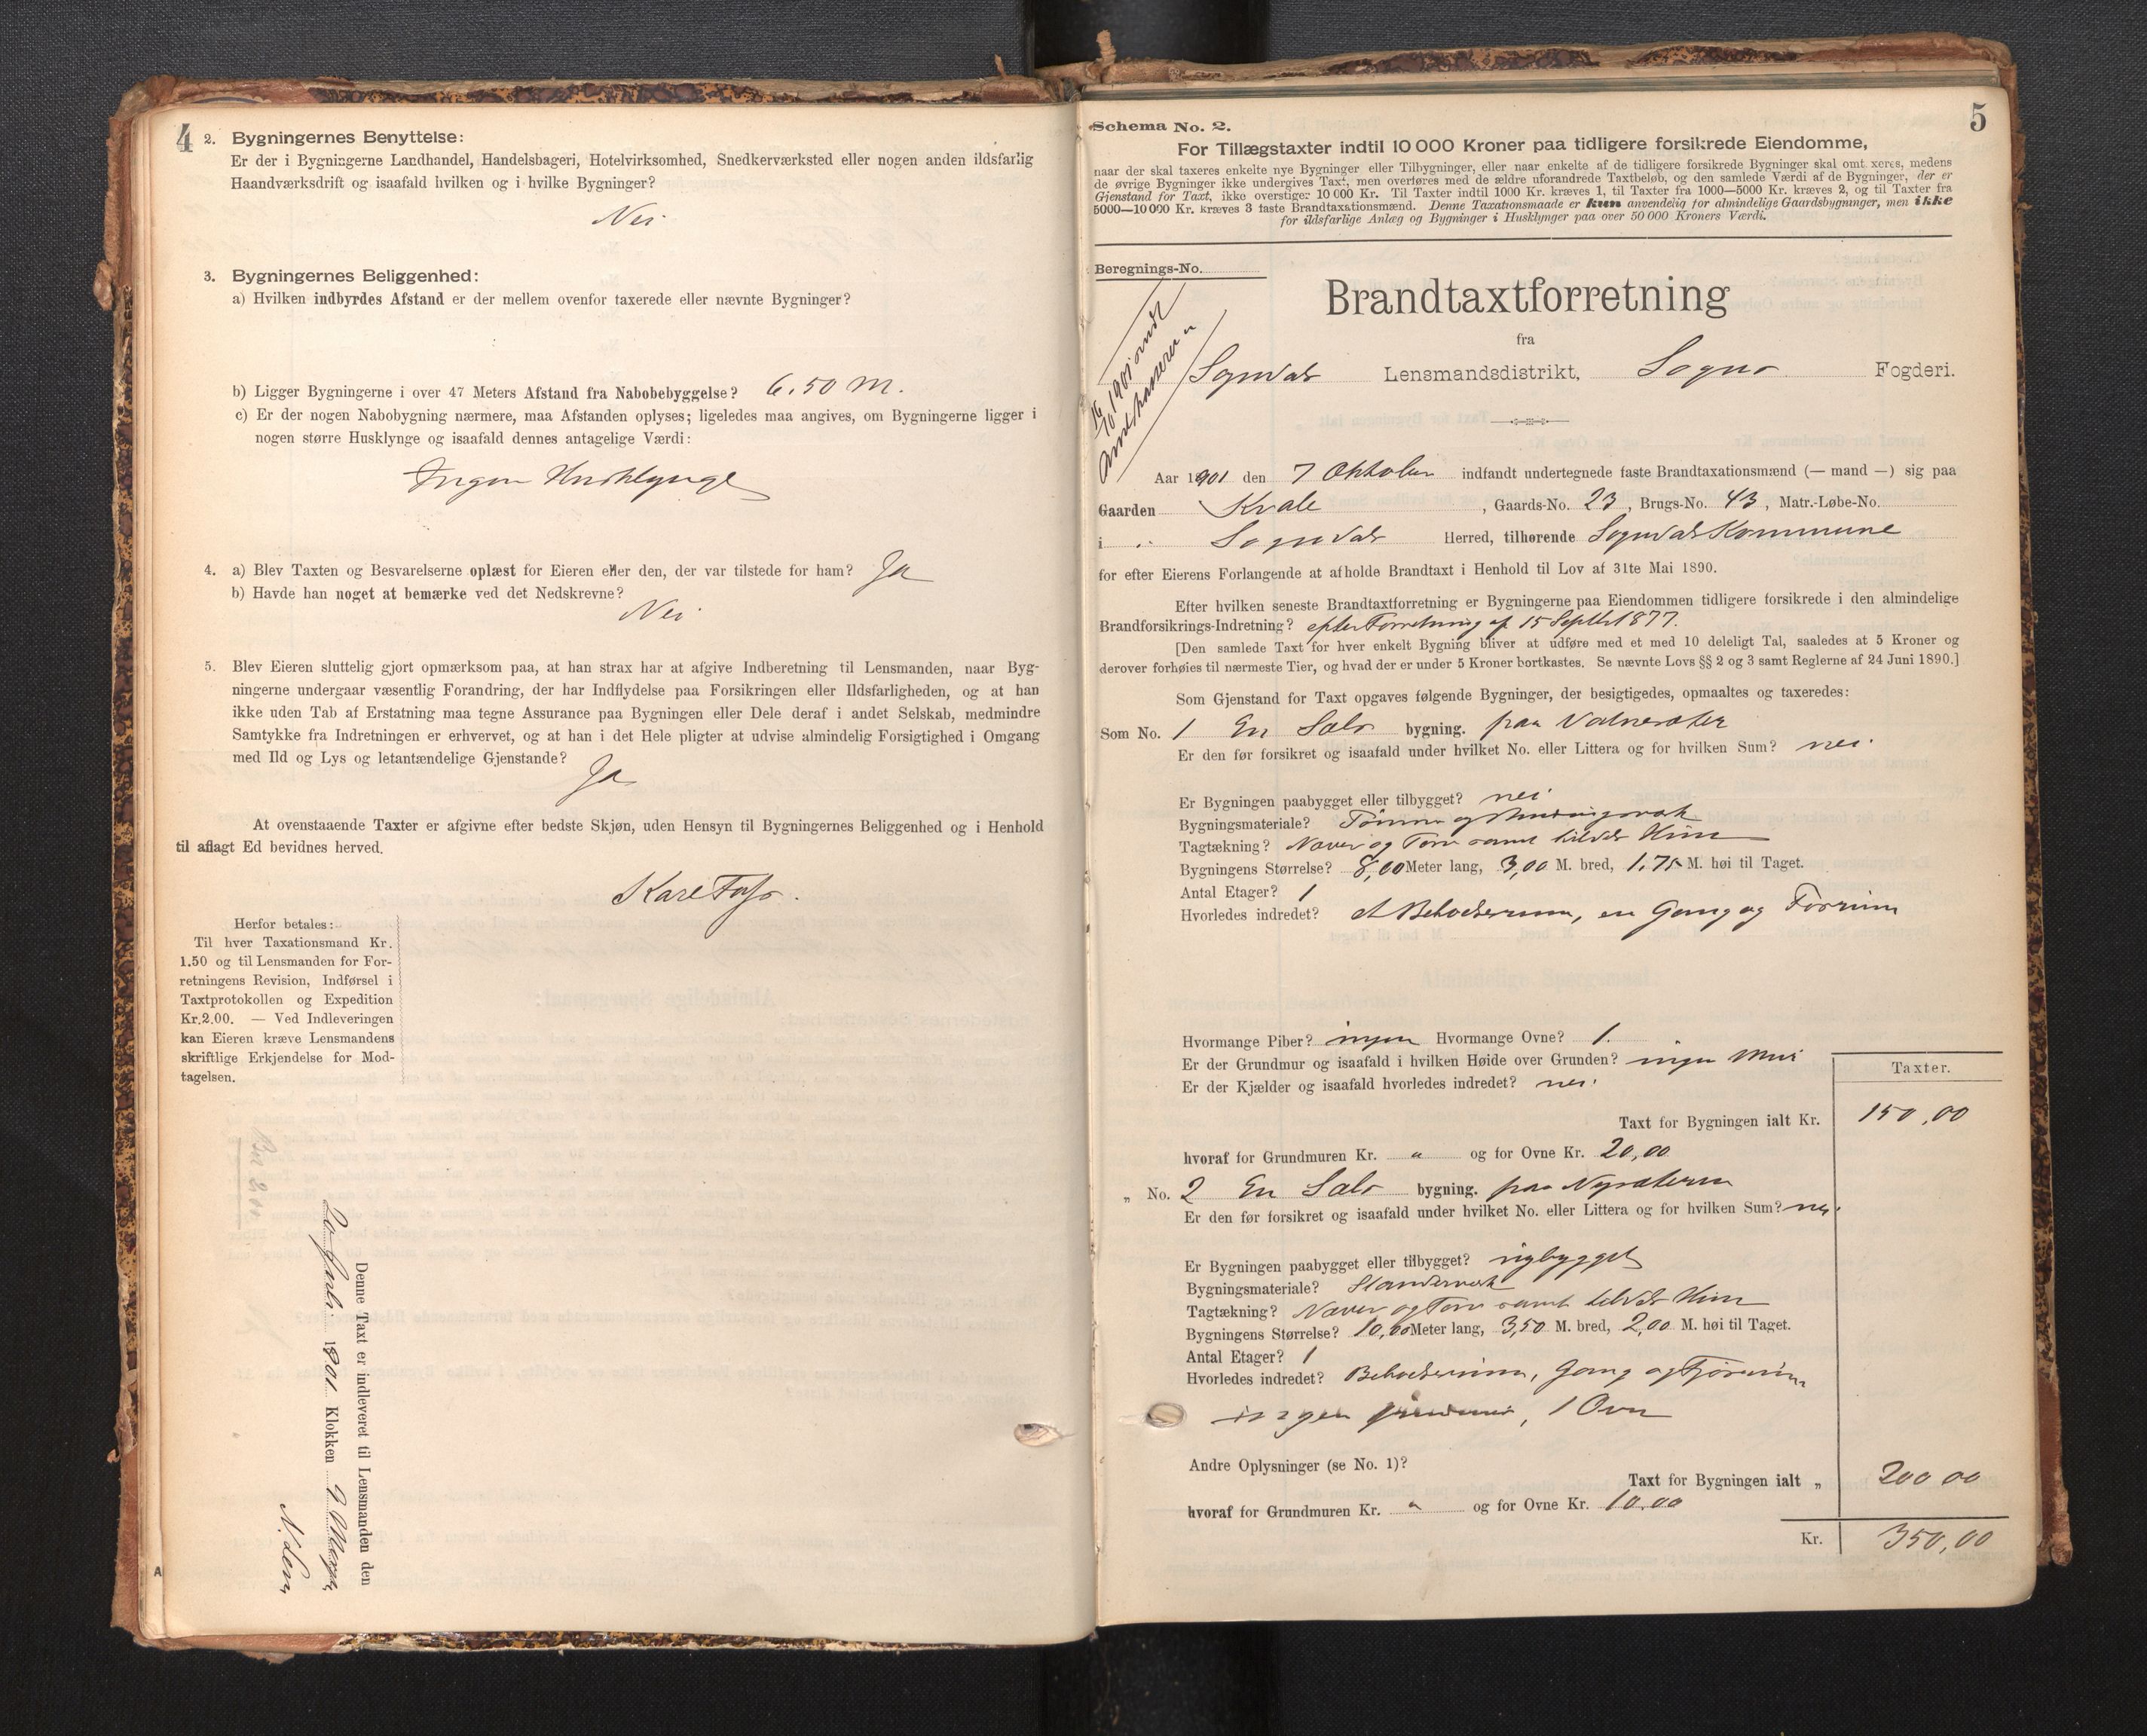 4
2. Bygningernes Benyttelse:
Er der i Bygningerne Landhandel, Handelsbageri, Hotelvirksomhed, Snedkerværksted eller nogen anden ildsfarlig
Haandværksdrift og isaafald hvilken og i hvilke Bygninger?
Nei
3. Bygningernes Beliggenhed:
a) Hvilken indbyrdes Afstand er der mellem ovenfor taxerede eller nævnte Bygninger?
b) Ligger Bygningerne i over 47 Meters Afstand fra Nabobebyggelse? 6.50 M.
c) Er der nogen Nabobygning nærmere, maa Afstanden oplyses; ligeledes maa angives, om Bygningerne ligger i
nogen større Husklynge og isaafald dennes antagelige Værdi:
Ingen Husklynge
4. a) Blev Taxten og Besvarelserne oplæst for Eieren eller den, der var tilstede for ham? Ja
b) Havde han noget at bemærke ved det Nedskrevne?
Nei
5. Blev Eieren sluttelig gjort opmærksom paa, at han strax har at afgive Indberetning til Lensmanden, naar Byg-
ningerne undergaar væsentlig Forandring, der har Indflydelse paa Forsikringen eller Ildsfarligheden, og at han
ikke uden Tab af Erstatning maa tegne Assurance paa Bygningen eller Dele deraf i andet Selskab, medmindre
Samtykke fra Indretningen er erhvervet, og at han i det Hele pligter at udvise almindelig Forsigtighed i Omgang
med Ild og Lys og letantændelige Gjenstande?
Ja
At ovenstaaende Taxter er afgivne efter bedste Skjøn, uden Hensyn til Bygningernes Beliggenhed og i Henhold
til aflagt Ed bevidnes herved.
Herfor betales:
Til hver Taxationsmand Kr.
1.50 og til Lensmanden for For-
retningens Revision, Indførsel i
Taxtprotokollen og Expedition
Kr.2.00. — Ved Indleveringen
kan Eieren kræve Lensmandens
skriftlige Erkjendelse for Mod-
tagelsen.
Denne Taxt er indleveret til Lensmanden den
20 Juli 1901 Klokken 9
5
Schema No. 2.
For Tillægstaxter indtil 10 000 Kroner paa tidligere forsikrede Eiendomme,
naar der skal taxeres enkelte nye Bygninger eller Tilbygninger, eller naar enkelte af de tidligere forsikrede Bygninger skal omt xeres, medens
de øvrige Bygninger ikke undergives Taxt, men overføres med de ældre uforandrede Taxtbeløb, og den samlede Værdi af de Bygninger, der er
Gjenstand for Taxt, ikke overstiger 10 000 Kr. Til Taxter indtil 1000 Kr. kræves 1, til Taxter fra 1000—5000 Kr. kræves 2, og til Taxter fra
5000—10 000 Kr. kræves 3 faste Brandtaxationsmænd. Denne Taxationsmaade er kun anvendelig for almindelige Gaardsbygninger, men ikke
for ildsfarlige Anlæg og Bygninger i Husklynger paa over 50 000 Kroners Værdi.
Beregnings-No.
Brandtaxtforretning
fra
Sogndals Lensmandsdistrikt, Sogns Fogderi.
Aar 1901 den 7 Oktober indfandt undertegnede faste Brandtaxationsmænd (— mand —) sig paa
Gaarden Kvale, Gaards-No. 23, Brugs-No. 43, Matr.-Løbe-No.
i Sogndals Herred, tilhørende Sogndals Kommune
for efter Eierens Forlangende at afholde Brandtaxt i Henhold til Lov af 31te Mai 1890.
Efter hvilken seneste Brandtaxtforretning er Bygningerne paa Eiendommen tidligere forsikrede i den almindelige
Brandforsikrings-Indretning? efter Forretning af 15 Septbr 1877.
[Den samlede Taxt for hver enkelt Bygning bliver at udføre med et med 10 deleligt Tal, saaledes at 5 Kroner og
derover forhøies til nærmeste Tier, og hvad der er under 5 Kroner bortkastes. Se nævnte Lovs §§ 2 og 3 samt Reglerne af 24 Juni 1890.]
Som Gjenstand for Taxt opgaves følgende Bygninger, der besigtigedes, opmaaltes og taxeredes:
Som No. 1 En Sels bygning. paa
Er den før forsikret og isaafald under hvilket No. eller Littera og for hvilken Sum? nei
Er Bygningen paabygget eller tilbygget? nei
Bygningsmateriale? Tømmer og
Tagtækning? Næver og Torv samt
Bygningens Størrelse? 8,00 Meter lang, 3,00 M. bred, 1.75 M. høi til Taget.
Antal Etager? 1
Hvorledes indredet? et Beboelsesrum, en Gang og
Hvormange Piber? ingen Hvormange Ovne? 1.
Er der Grundmur og isaafald i hvilken Høide over Grunden? ingen Mur
Er der Kjælder og isaafald hvorledes indredet? nei
Taxter.
Taxt for Bygningen ialt Kr. 150,00
hvoraf for Grundmuren Kr. " og for Ovne Kr. 20,00
„ No. 2 En Sels bygning. paa Nysæteren
Er den før forsikret og isaafald under hvilket No. eller Littera og for hvilken Sum? nei
Er Bygningen paabygget eller tilbygget? nybygget
Bygningsmateriale? Standerverk
Tagtækning? Næver og Torv samt
Bygningens Størrelse? 10,00 Meter lang, 3,50 M. bred, 2,00 M. høi til Taget.
Antal Etager? 1
Hvorledes indredet? Beboelsesrum, Gang og
ingen, 1 Ovn
Andre Oplysninger (se No. 1)?
Taxt for Bygningen ialt „ 200 00
hvoraf for Grundmuren Kr. " og for Ovne Kr. 10.00
Kr. 350,00